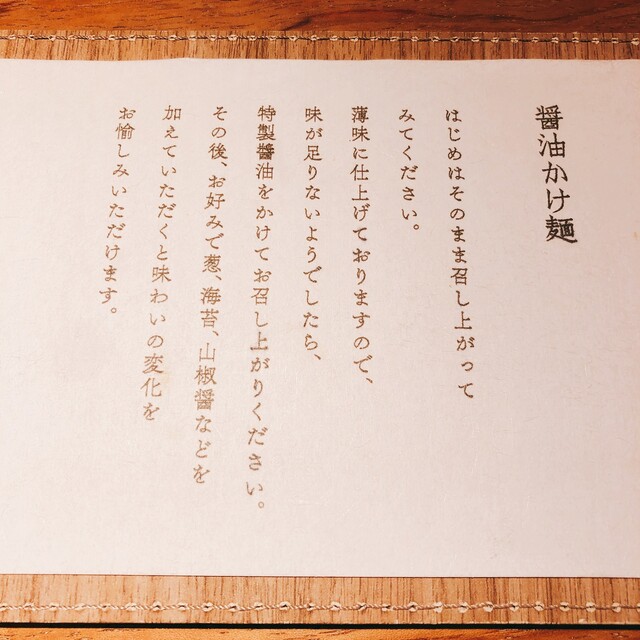 醤油かけ麺
はじめはそのまま召し上がって
みてください。
薄味に仕上げておりますので、
味が足りないようでしたら、
特製醬油をかけてお召し上がりください。
その後、お好みで葱、海苔、山椒醬などを
加えていただくと味わいの変化を
お愉しみいただけます。